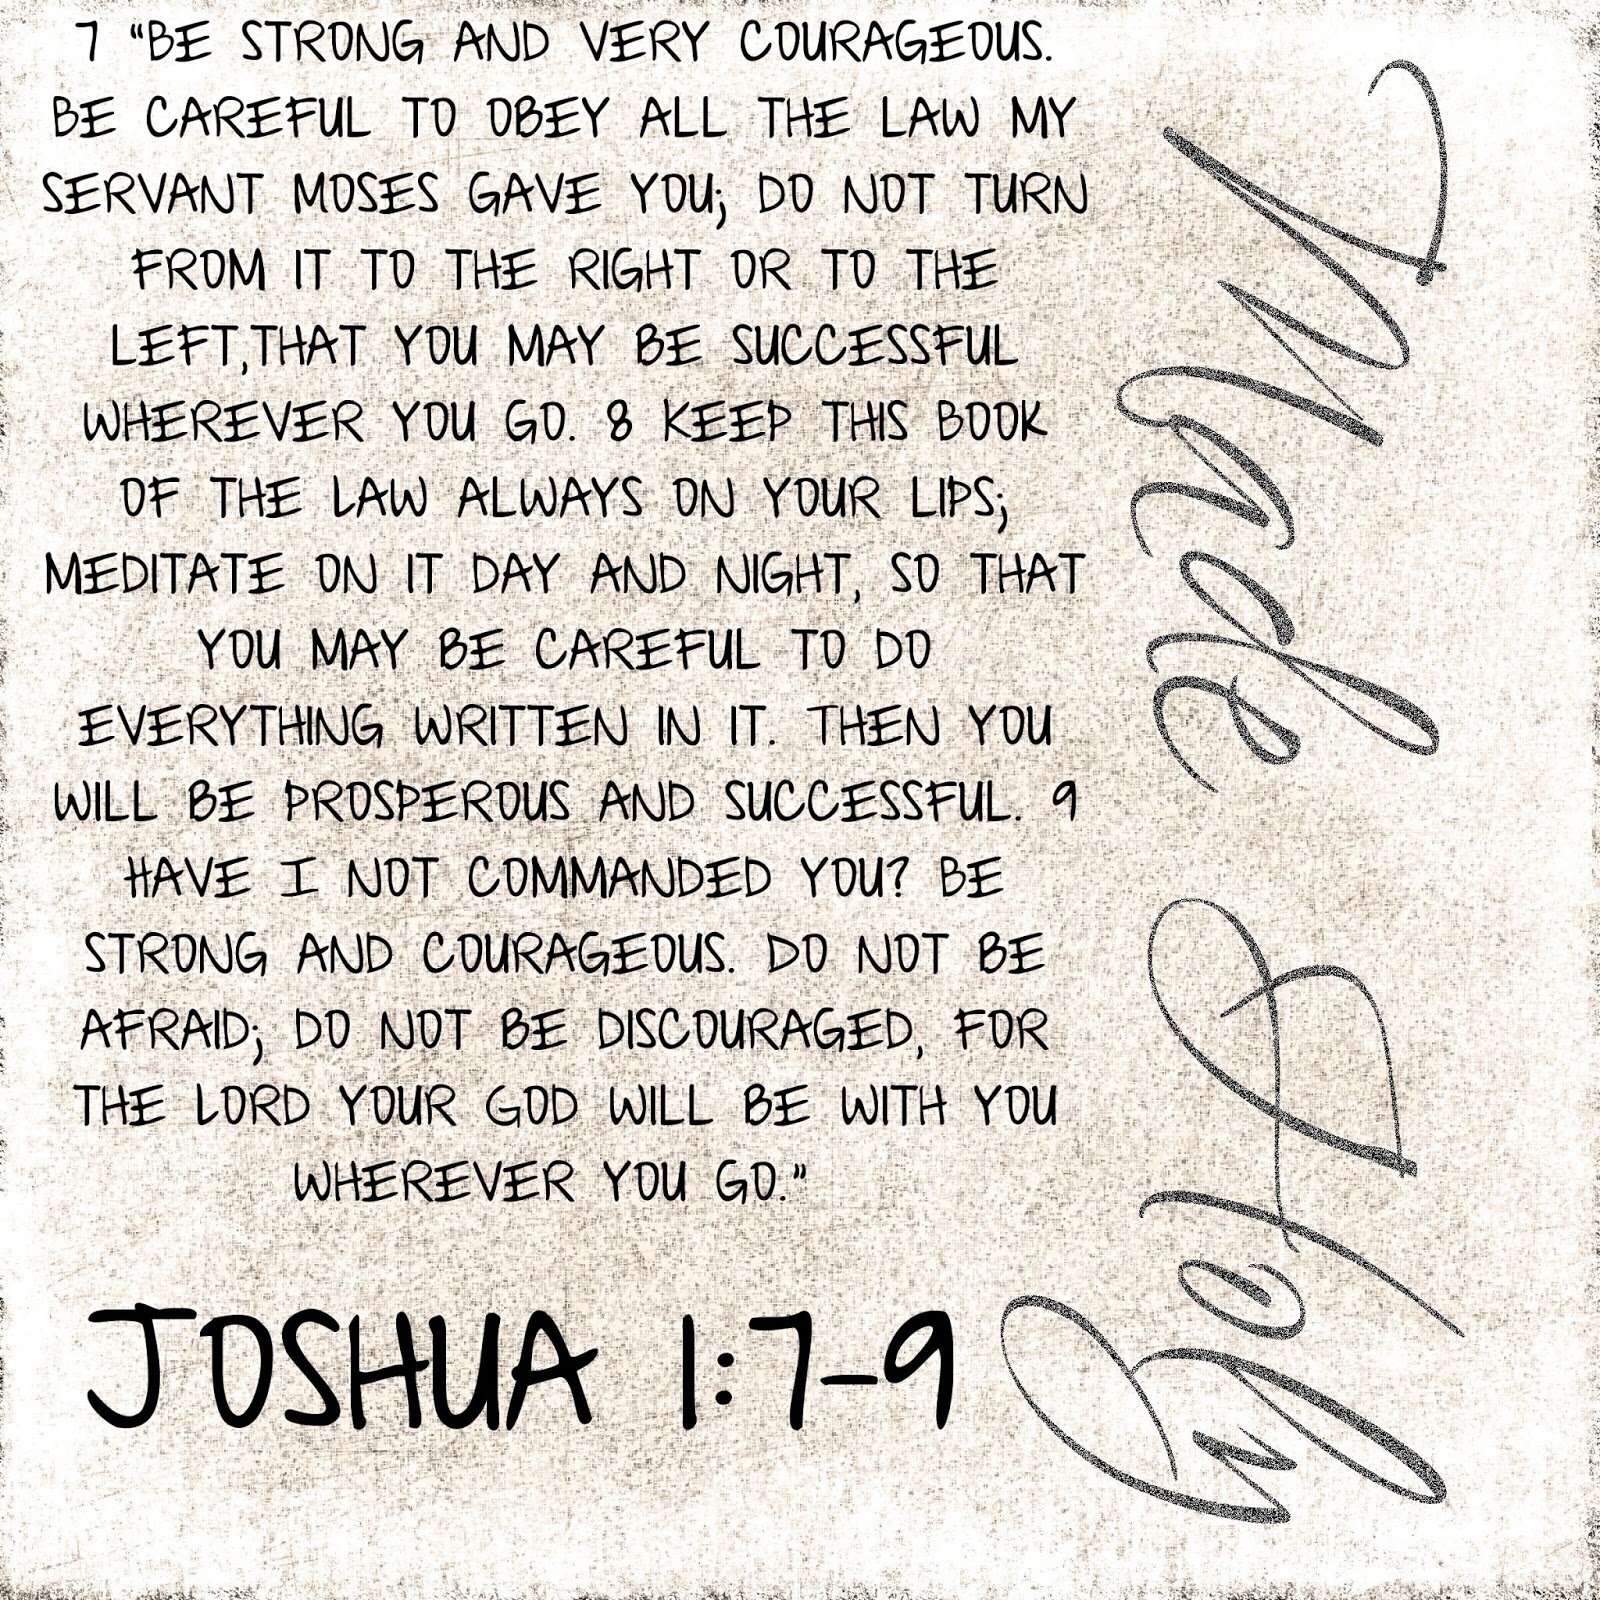 7 “BE STRONG AND VERY COURAGEOUS.
BE CAREFUL TO OBEY ALL THE LAW MY
SERVANT MOSES GAVE YOU; DO NOT TURN
FROM IT TO THE RIGHT OR TO THE
LEFT,THAT YOU MAY BE SUCCESSFUL
WHEREVER YOU GO. 8 KEEP THIS BOOK
OF THE LAW ALWAYS ON YOUR LIPS;
MEDITATE ON IT DAY AND NIGHT, SO THAT
YOU MAY BE CAREFUL TO DO
EVERYTHING WRITTEN IN IT. THEN YOU
WILL BE PROSPEROUS AND SUCCESSFUL. 9
HAVE I NOT COMMANDED YOU? BE
STRONG AND COURAGEOUS. DO NOT BE
AFRAID; DO NOT BE DISCOURAGED, FOR
THE LORD YOUR GOD WILL BE WITH YOU
WHEREVER YOU GO.”
JOSHUA 1:7-9
Made Holy